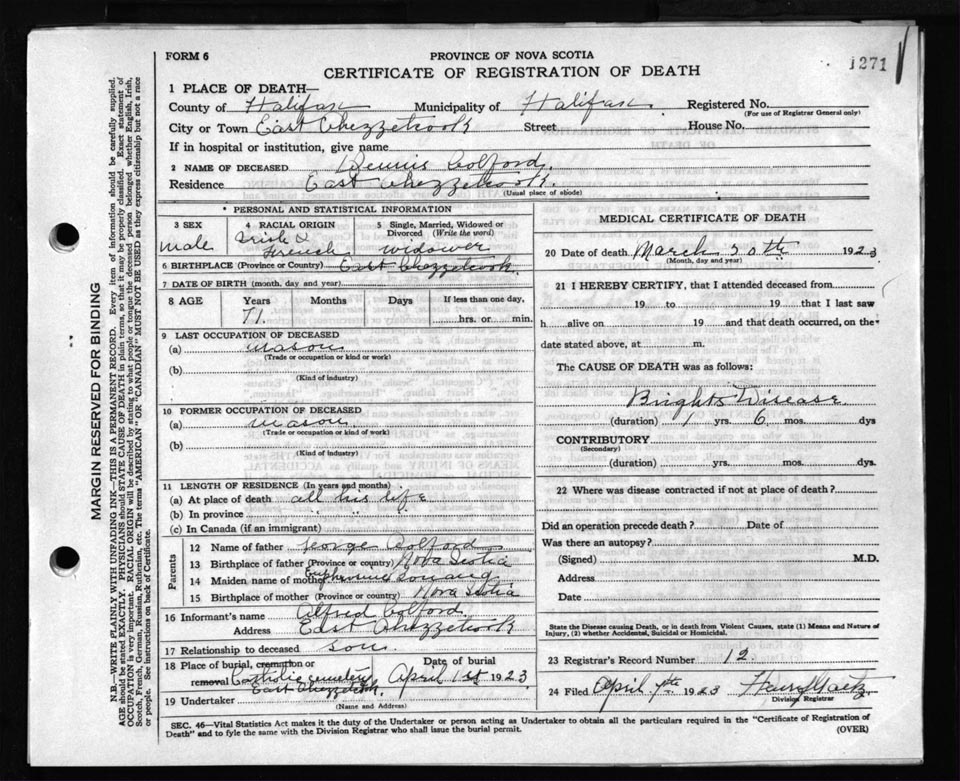 1271
FORM 6
PROVINCE OF NOVA SCOTIA
CERTIFICATE OF REGISTRATION OF DEATH
1 PLACE OF DEATH—
County of Halifax Municipality of Halifax Registered No.
(For use of Registrar General only)
City or Town East Chezzetcook Street House No.
If in hospital or institution, give name
2 NAME OF DECEASED Dennis Colford
Residence East Chezzetcook
(Usual place of abode)
* PERSONAL AND STATISTICAL INFORMATION
3 SEX male
4 RACIAL ORIGIN Irish & French
5 Single, Married, Widowed or Divorced (Write the word) widower
6 BIRTHPLACE (Province or Country) East Chezzetcook
7 DATE OF BIRTH (month, day and year)
8 AGE Years Months Days If less than one day,
71. hrs. or min.
9 LAST OCCUPATION OF DECEASED
(a) mason
(Trade or occupation or kind or work)
(b)
(Kind of industry)
10 FORMER OCCUPATION OF DECEASED
(a) mason
(Trade or occupation or kind of work)
(b)
(Kind of industry)
11 LENGTH OF RESIDENCE (In years and months)
(a) At place of death all his life
(b) In province " " "
(c) In Canada (if an immigrant)
Parents
12 Name of father George Colford
13 Birthplace of father (Province or country) Nova Scotia
14 Maiden name of mother
15 Birthplace of mother (Province or country) Nova Scotia
16 Informant's name Alfred Colford
Address East Chezzetcook
17 Relationship to deceased son
18 Place of burial, cremation or
removal Catholic cemetery East Chezzetcook
Date of burial April 1st 1923
19 Undertaker
(Name and Address)
MEDICAL CERTIFICATE OF DEATH
20 Date of death March 30th 1923
(Month, day and year)
21 I HEREBY CERTIFY, that I attended deceased from
19 to 19 that I last saw
h alive on 19 and that death occurred, on the
date stated above, at m.
The CAUSE OF DEATH was as follows:
Brights Disease
(duration) 1 yrs. 6 mos. dys
CONTRIBUTORY
(Secondary)
(duration) yrs. mos. dys.
22 Where was disease contracted if not at place of death?
Did an operation precede death? Date of
Was there an autopsy?
(Signed) M.D.
Address
Date
State the Disease causing Death, or in death from Violent Causes, state (1) Means and Nature of
Injury, (2) whether Accidental, Suicidal or Homicidal.
23 Registrar's Record Number 12.
24 Filed April 7th 1923
Division Registrar
SEC. 46—Vital Statistics Act makes it the duty of the Undertaker or person acting as Undertaker to obtain all the particulars required in the "Certificate of Registration of
Death" and to fyle the same with the Division Registrar who shall issue the burial permit.
(OVER)
MARGIN RESERVED FOR BINDING
N.B.—WRITE PLAINLY WITH UNFADING INK—THIS IS A PERMANENT RECORD. Every item of information should be carefully supplied.
AGE should be stated EXACTLY. PHYSICIANS should STATE CAUSE OF DEATH in plain terms, so that it may be properly classified. Exact statement of
OCCUPATION is very important. RACIAL ORIGIN will be described by stating to what people or tongue the deceased person belonged whether English, Irish,
Scotch, French, German, Russian, Ruthenian, etc. The terms "AMERICAN" OR "CANADIAN" MUST NOT BE USED as they express citizenship but not a race
or people. See instructions on back of Certificate.